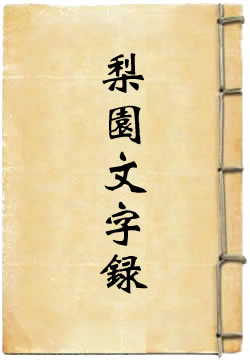 梨園文字録